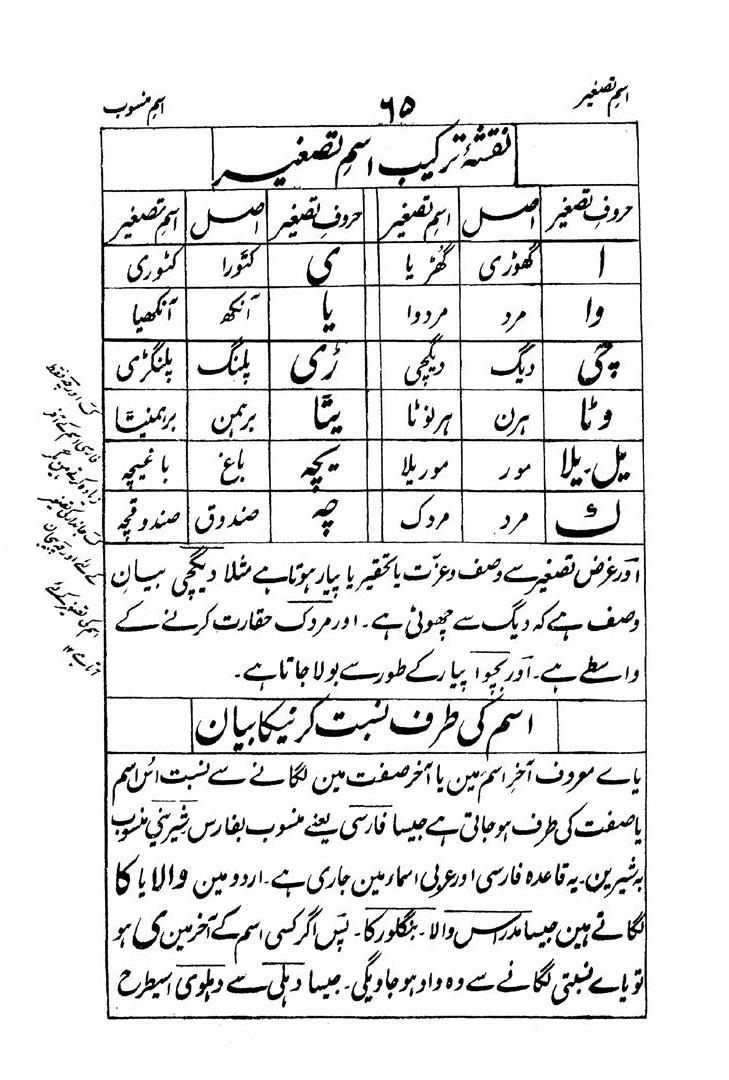 اسم تصغیر ۶۵ اسم منسوب
نقشۂ ترکیب اسم تصغیر
حروفِ تصغیر اصل اسم تصغیر حروفِ تصغیر اصل اسم تصغیر
ا گھوڑی گھڑیا ی کٹورا کٹوری
وا مرد مردوا یا آنکھ آنکھیا
چی دیگ دیگچی ڑی پلنگ پلنگڑی
وٹا ہرن ہرنوٹا یٹا برہمن برہمنیٹا
یل۔یلا مور موریلا یچہ باغ باغیچہ
ک مرد مردک چہ صندوق صندوقچہ
اَور غرض تصغیر سے وصف وعزت یا تحقیر یا پیار ہوتا ہے مثلا دیگچی بیانِ
وصف ہے کہ دیگ سے چھوٹی ہے۔ اور مردک حقارت کرنے کے
واسطے ہے۔ اَور بچوا پیار کے طور سے بولا جاتا ہے۔
ک اور چہ فقط
فارسی اسم کے آخر
زیادہ کرتے ہین مگر
ک جاندار کی تصغیر
کے لئے اور چہ بیجان
اسم کی تصغیر کے لئے
آتا ہے ۱۲
اسم کی طرف نسبت کرنیکا بیان
یاے معروف آخرِ اسم مین یا آخر صفت مین لگانے سے نسبت اُس اسم
یا صفت کی طرف ہو جاتی ہے جیسا فارسی یعنے منسوب بفارس شیرینی منسوب
بہ شیرین۔ یہ قاعدہ فارسی اور عربی اسماء مین جاری ہے۔ اردو مین والا یا کا
لگاتے ہین جیسا مدراس والا۔ بنگلور کا۔ پس اگر کسی اسم کے آخر مین ی ہو
تو یاے نسبتی لگانے سے وہ واو ہو جاویگی۔ جیسا دہلی سے دہلوی اسیطرح